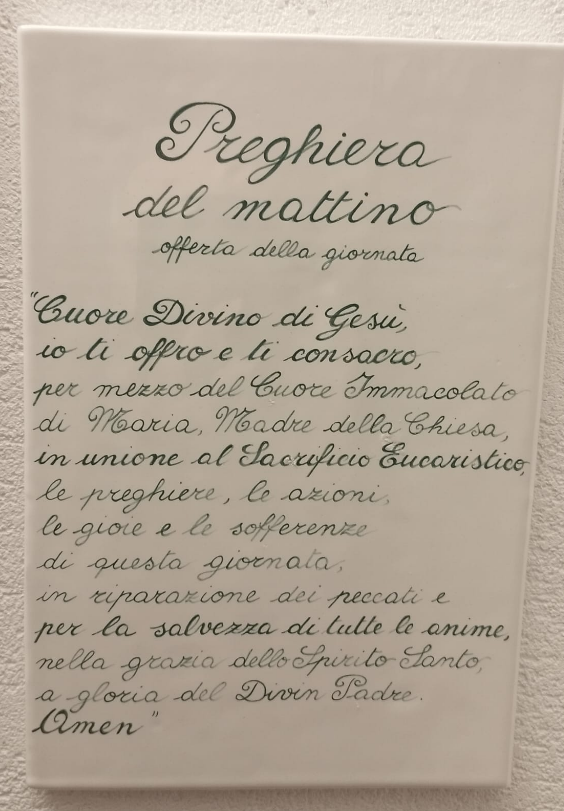 Preghiera
del mattino
offerta della giornata
"Cuore Divino di Gesù,
io ti offro e ti consacro,
per mezzo del Cuore Immacolato
di Maria, Madre della Chiesa,
in unione al Sacrificio Eucaristico,
le preghiere, le azioni,
le gioie e le sofferenze
di questa giornata,
in riparazione dei peccati e
per la salvezza di tutte le anime,
nella grazia dello Spirito Santo,
a gloria del Divin Padre.
Amen"